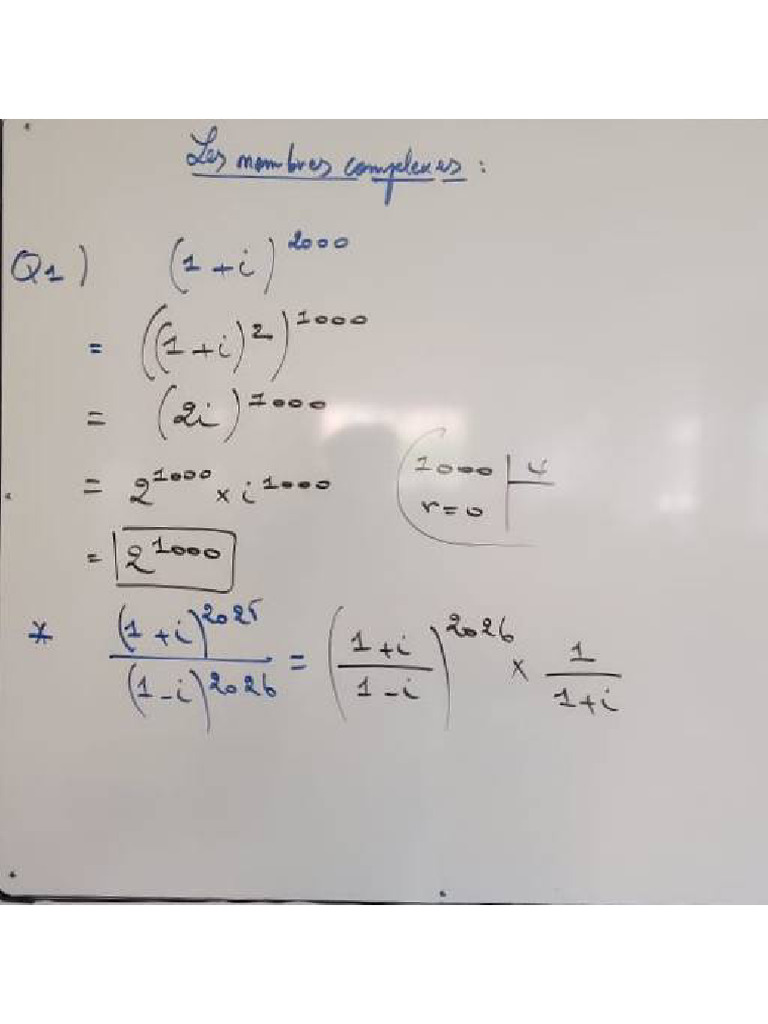 Les nombres complexes :
Q1) (1+i)^2000
= ((1+i)^2)^1000
= (2i)^1000
= 2^1000 × i^1000
1000 | 4
r=0
= 2^1000
* (1+i)^2025 / (1-i)^2026 = ((1+i)/(1-i))^2026 × 1/(1+i)